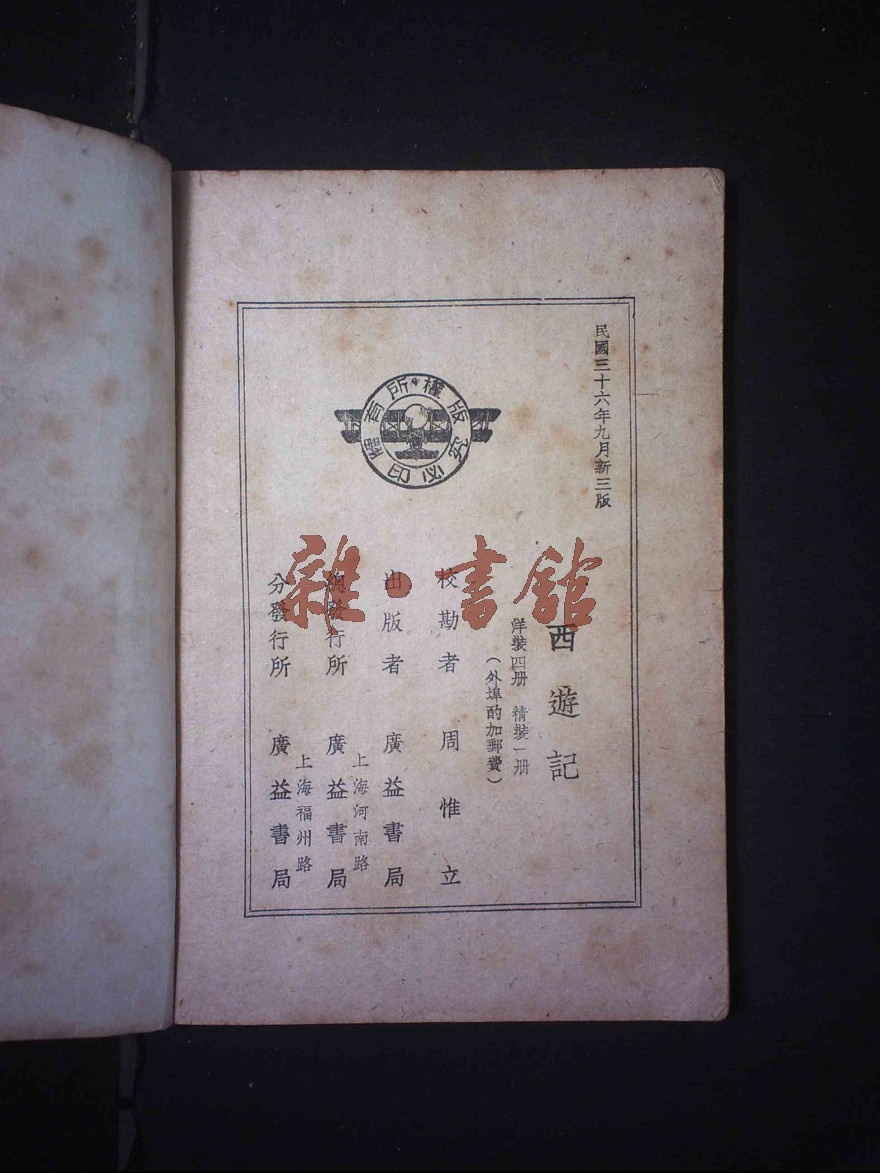 民國三十六年九月新三版
版權所有
翻印必究
西遊記
洋裝四册 精裝一册
(外埠酌加郵費)
校勘者 周惟立
出版者 廣益書局
上海河南路
總發行所 廣益書局
上海福州路
分發行所 廣益書局
雜·書館